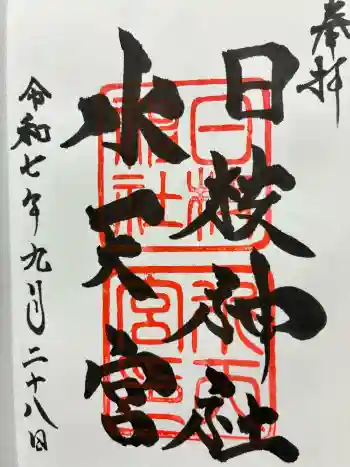 奉拝
日枝神社
水天宮
令和七年九月二十八日
日枝
神社
水天
宮